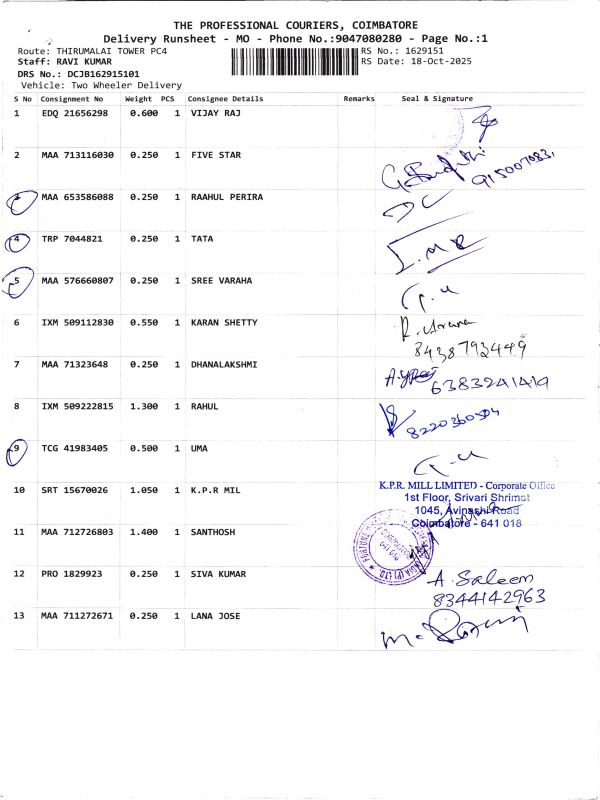 THE PROFESSIONAL COURIERS, COIMBATORE
Delivery Runsheet - MO - Phone No.:9047080280 - Page No.:1
Route: THIRUMALAI TOWER PC4
RS No.: 1629151
Staff: RAVI KUMAR
RS Date: 18-Oct-2025
DRS No.: DCJB162915101
Vehicle: Two Wheeler Delivery
S No Consignment No Weight PCS Consignee Details Remarks Seal & Signature
1 EDQ 21656298 0.600 1 VIJAY RAJ
2 MAA 713116030 0.250 1 FIVE STAR
3 MAA 653586088 0.250 1 RAAHUL PERIRA
4 TRP 7044821 0.250 1 TATA
5 MAA 576660807 0.250 1 SREE VARAHA
6 IXM 509112830 0.550 1 KARAN SHETTY
8438793449
7 MAA 71323648 0.250 1 DHANALAKSHMI
6383241419
8 IXM 509222815 1.300 1 RAHUL
8220360504
9 TCG 41983405 0.500 1 UMA
10 SRT 15670026 1.050 1 K.P.R MIL
K.P.R. MILL LIMITED - Corporate Office
1st Floor, Srivari Shrimat
1045, Avinashi Road
Coimbatore - 641 018
11 MAA 712726803 1.400 1 SANTHOSH
12 PRO 1829923 0.250 1 SIVA KUMAR
A. Saleem
8344142963
13 MAA 711272671 0.250 1 LANA JOSE